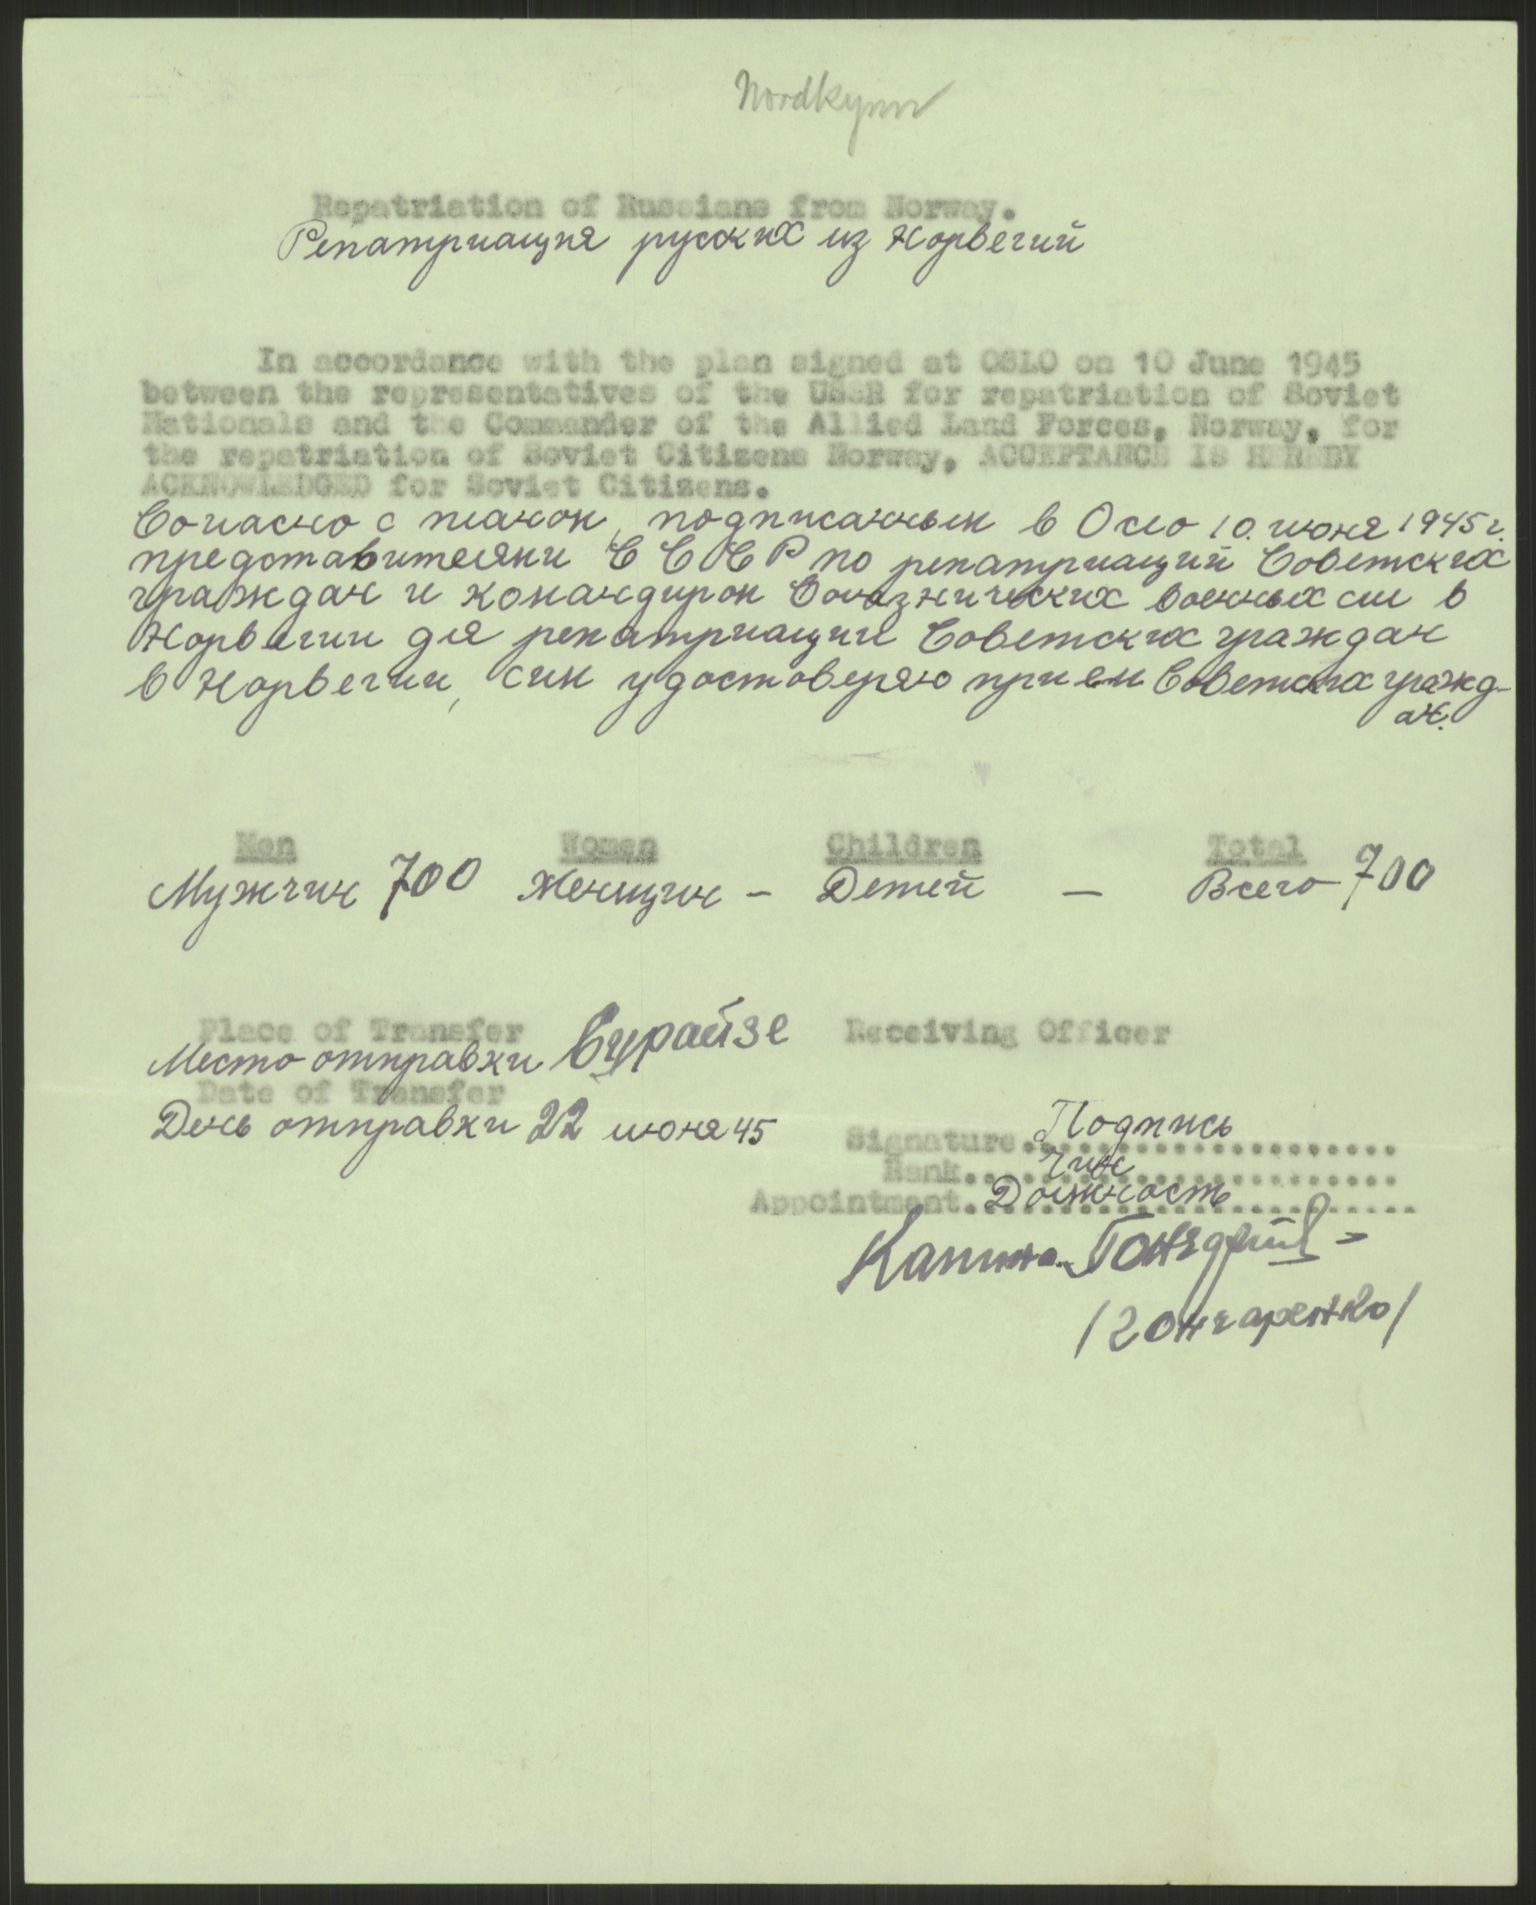 Nordkynn
Repatriation of Russians from Norway.
Репатриация русских из Норвегий
In accordance with the plan signed at OSLO on 10 June 1945
between the representatives of the USSR for repatriation of Soviet
Nationals and the Commander of the Allied Land Forces, Norway, for
the repatriation of Soviet Citizens Norway, ACCEPTANCE IS HEREBY
ACKNOWLEDGED for Soviet Citizens.
Согласно с планом, подписанным в Осло 10. июня 1945 г.
представителями СССР по репатриаций Советских
граждан и командиром Союзнических военных сил в
Норвегии для репатриации Советских граждан
в Норвегии, сим удостоверяю прием Советских гражд-
ан.
Men Women Children Total
Мужчин 700 Женщин - Детей — Всего 700
Place of Transfer Receiving Officer
Место отправки
Date of Transfer
День отправки 22 июня 45
Signature.... Подпись
Rank.... Чин
Appointment.... Должность